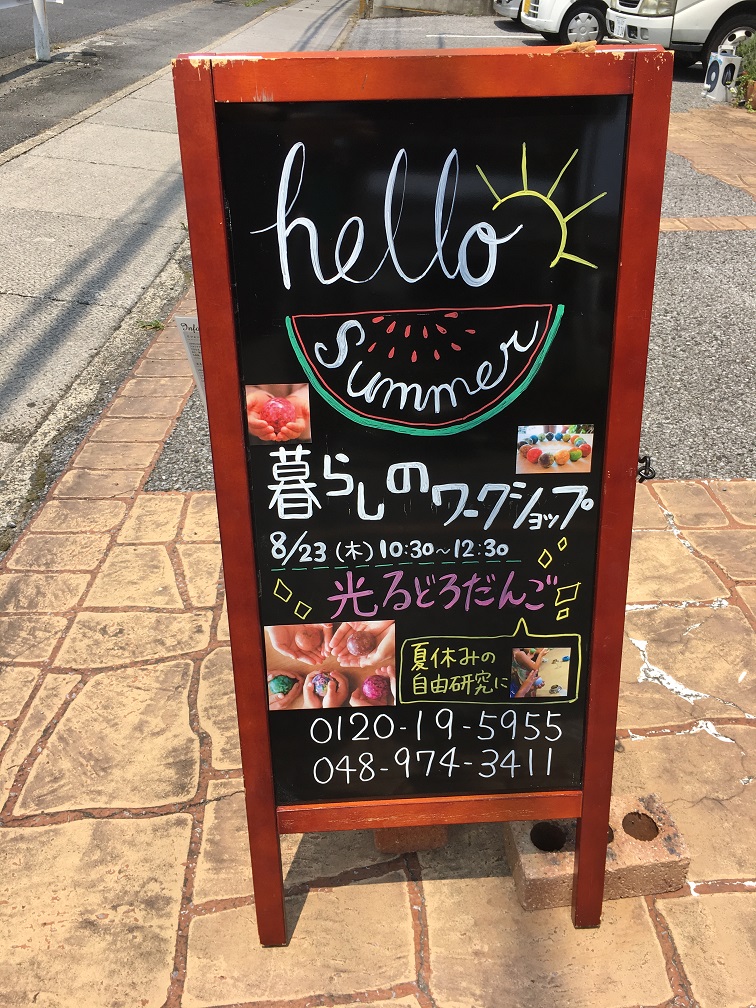 hello
Summer
暮らしの ワークショップ
8/23 (木) 10:30～12:30
光るどろだんご
夏休みの
自由研究に
0120-19-5955
048-974-3411